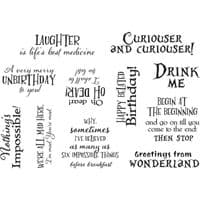 LAUGHTER
is life's best medicine
CURIOUSER
AND CURIOUSER!
A very merry
UNBIRTHDAY
to you!
Oh dear!
OH DEAR!
HAPPY BELATED
Birthday!
DRINK
ME
BEGIN AT
THE BEGINNING
and go on till you
come to the end
THEN STOP
Nothing's
Impossible!
WE'RE ALL MAD HERE.
I'm mad. You're mad.
WHY,
sometimes
I'VE BELIEVED
as many as
SIX IMPOSSIBLE THINGS
before breakfast
Greetings from
WONDERLAND